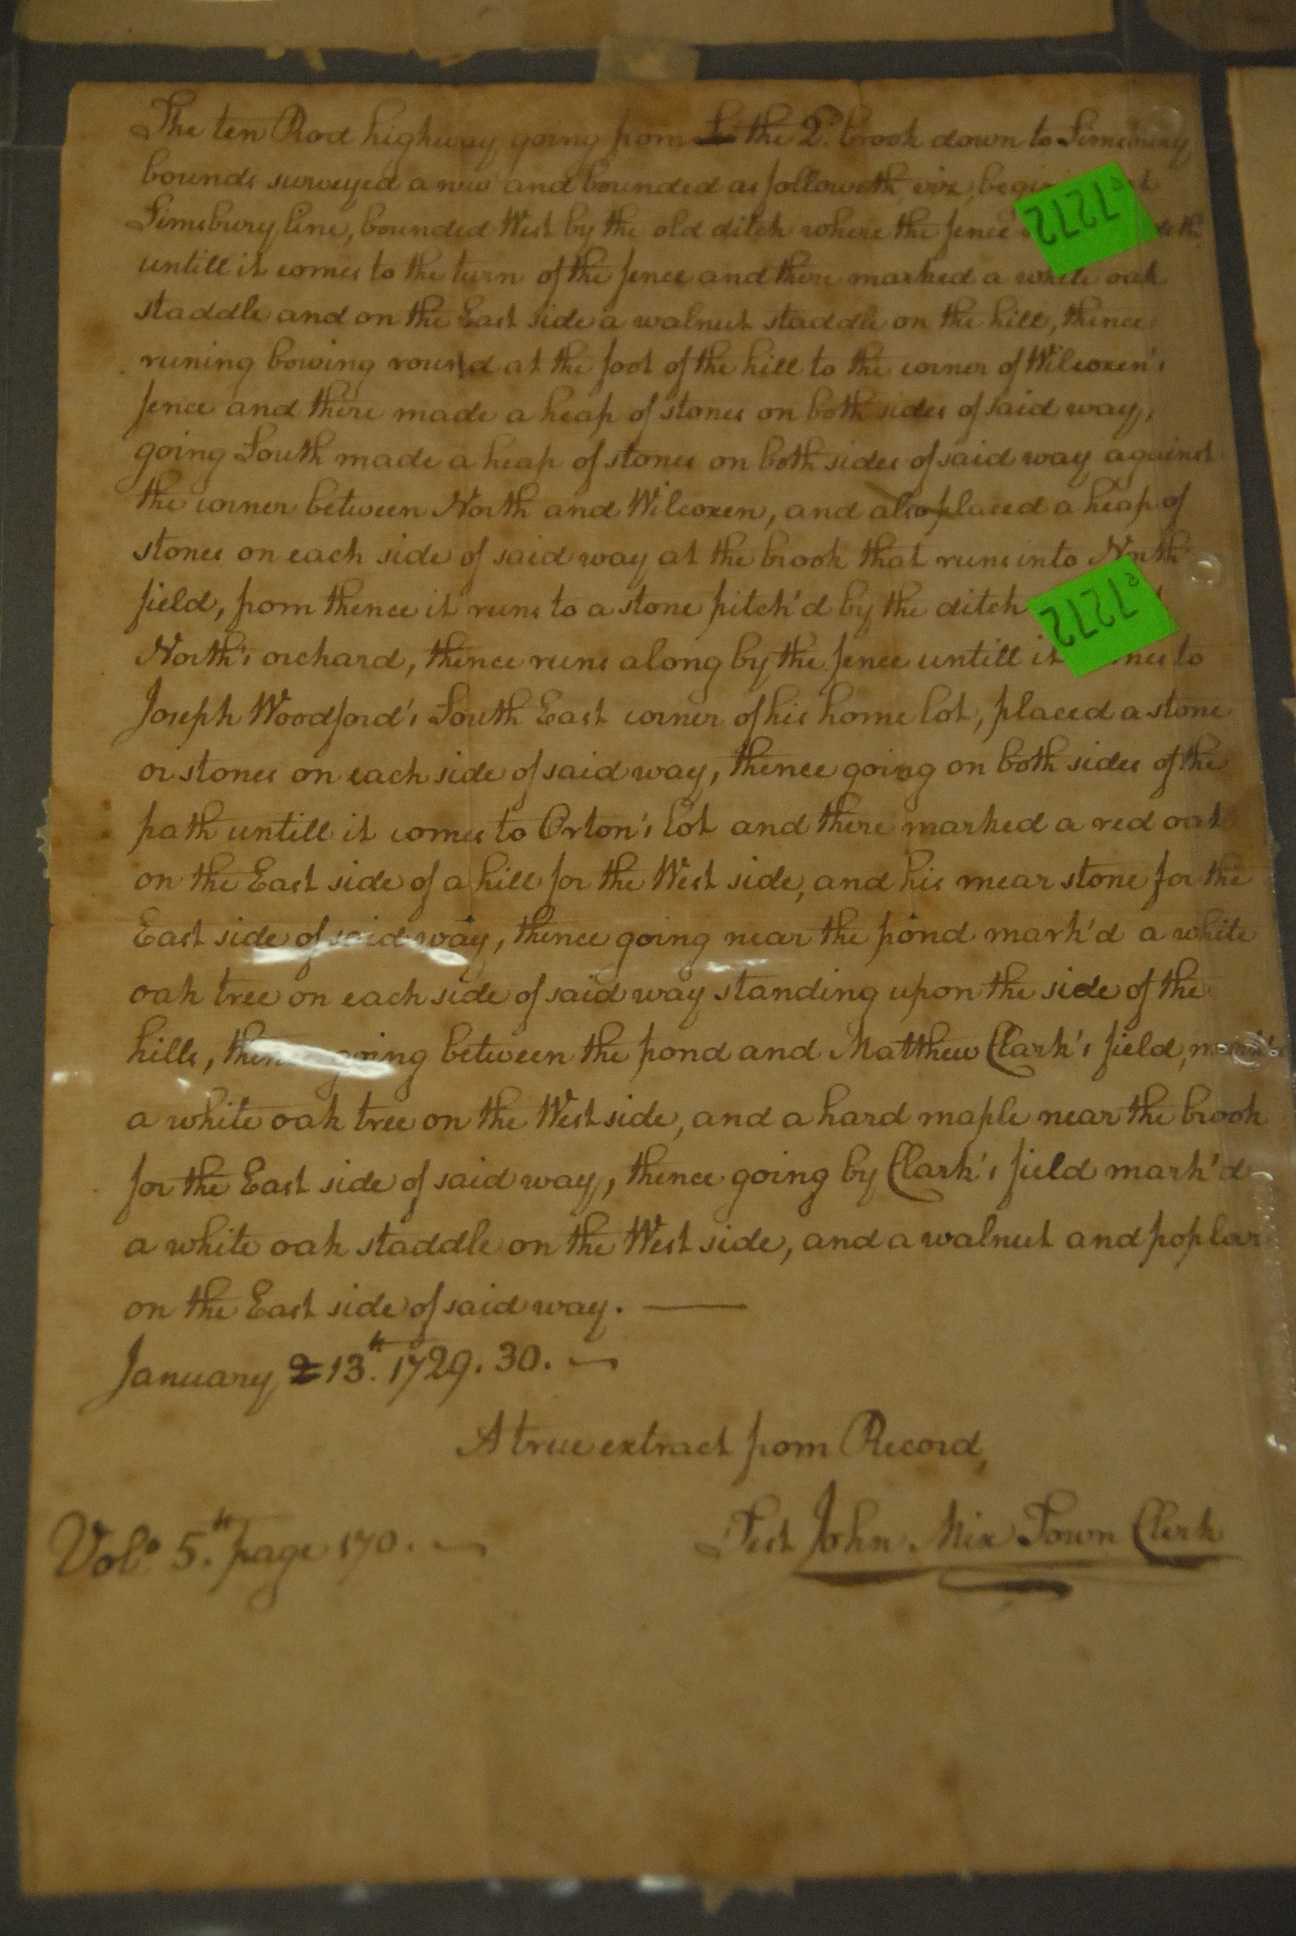 The ten Rod highway going from the 2d. brook down to Simsbury
bounds surveyed anew and bounded as followeth, viz, at
Simsbury line, bounded West by the old ditch where the fence
untill it comes to the turn of the fence and there marked a white oak
staddle and on the East side a walnut staddle on the hill, thence
runing bowing round at the foot of the hill to the corner of Wilcoxen's
fence and there made a heap of stones on both sides of said way,
going South made a heap of stones on both sides of said way against
the corner between North and Wilcoxen, and also placed a heap of
stones on each side of said way at the brook that runs into North's
field, from thence it runs to a stone pitch'd by the ditch
North's orchard, thence runs along by the fence untill it to
Joseph Woodford's South East corner of his home lot, placed a stone
or stones on each side of said way, thence going on both sides of the
path untill it comes to Orton's lot and there marked a red oak
on the East side of a hill for the West side, and his mear stone for the
East side of said way, thence going near the pond mark'd a white
oak tree on each side of said way standing upon the side of the
hills, thence going between the pond and Matthew Clark's field,
a white oak tree on the West side, and a hard maple near the brook
for the East side of said way, thence going by Clark's field mark'd
a white oak staddle on the West side, and a walnut and poplar
on the East side of said way. ——
January 13th. 1729.30. —
A true extract from Record,
Test John Mix Town Clerk
Vol. 5th. page 170. —
7272
7272